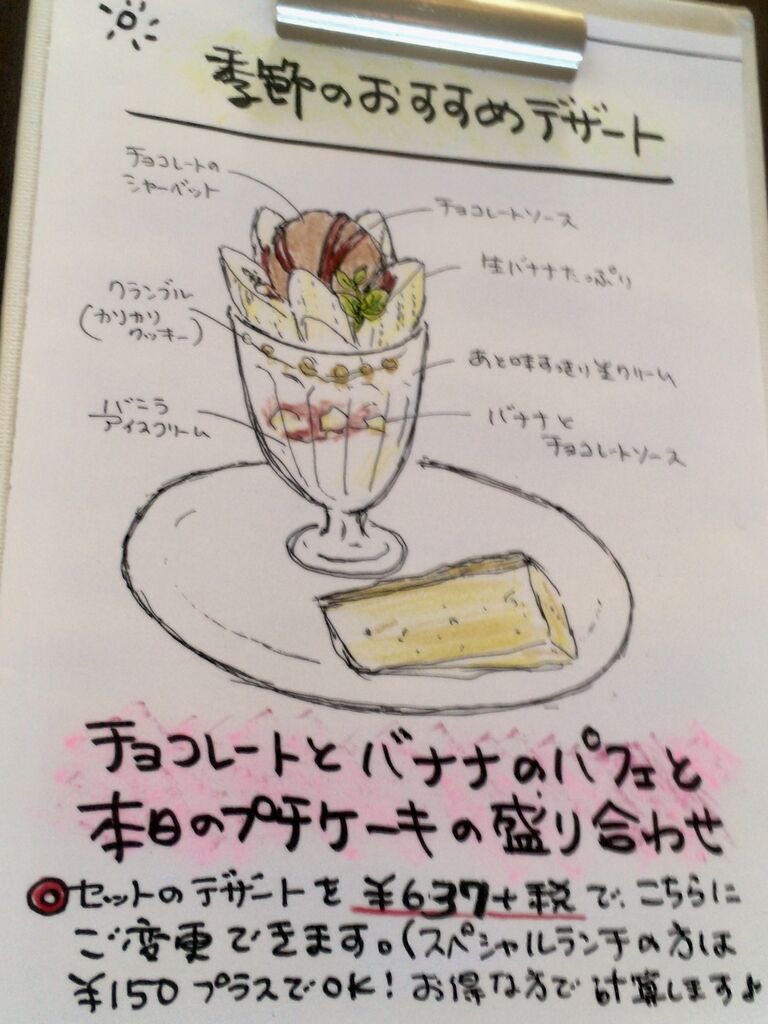 季節のおすすめデザート
チョコレートの
シャーベット
チョコレートソース
生バナナたっぷり
クランブル
(カリカリ
クッキー)
あと味すっきり生クリーム
バニラ
アイスクリーム
バナナと
チョコレートソース
チョコレートとバナナのパフェと
本日のプチケーキの盛り合わせ
◎セットのデザートを¥637+税で、こちらに
ご変更できます。(スペシャルランチの方は
¥150プラスでOK!お得な方で計算します♪